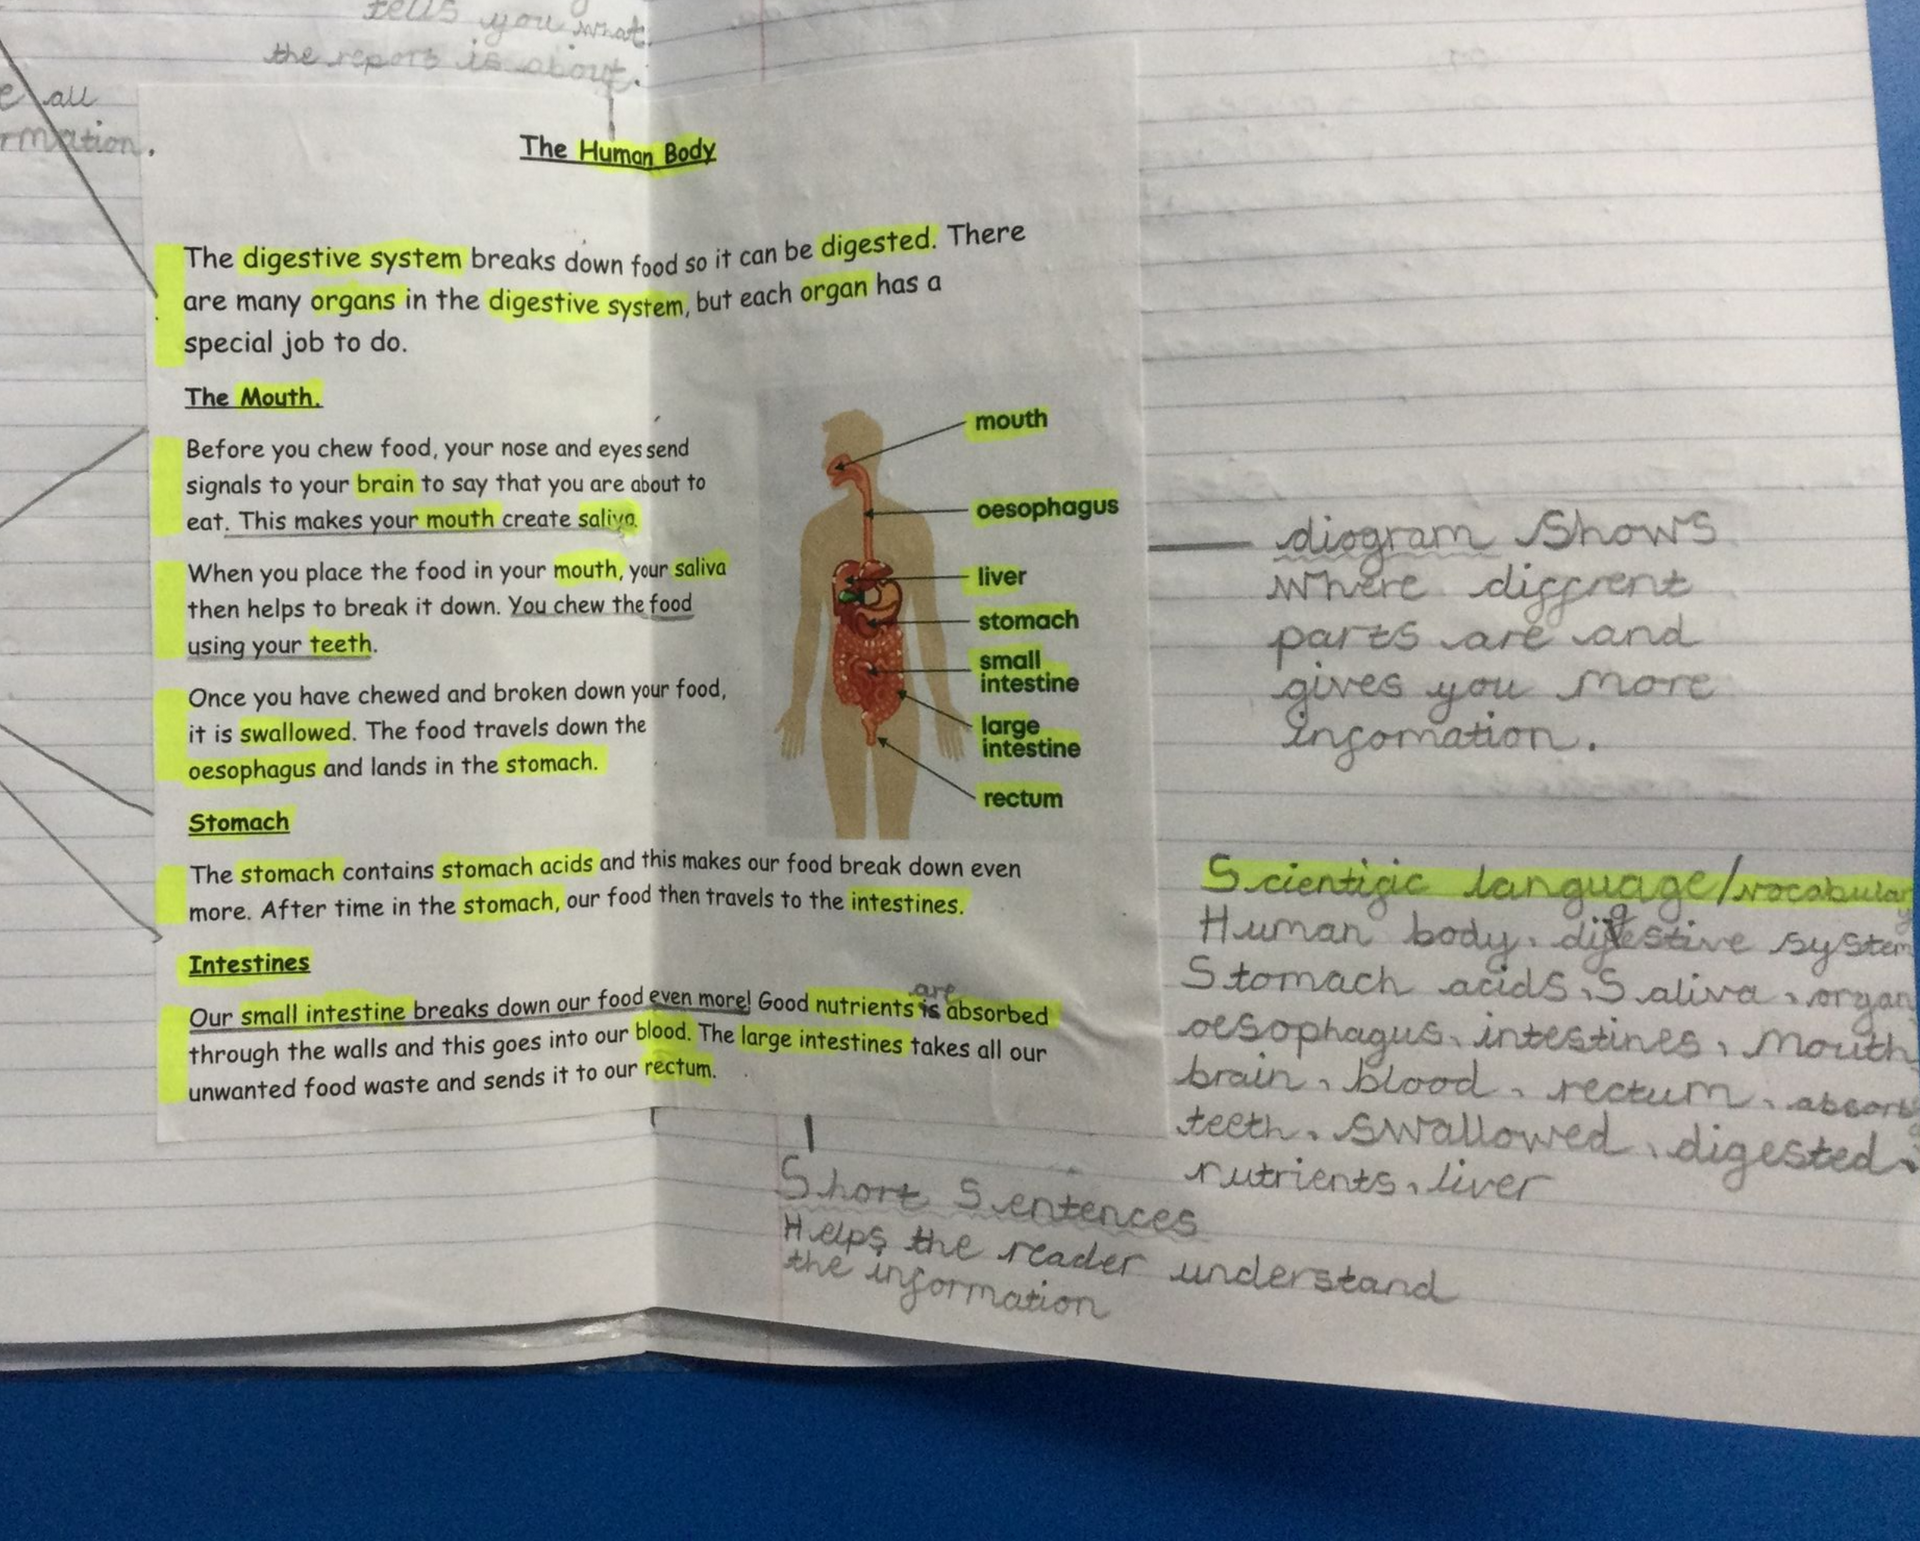 tells you what
the report is about.
all
The Human Body
The digestive system breaks down food so it can be digested. There
are many organs in the digestive system, but each organ has a
special job to do.
The Mouth.
Before you chew food, your nose and eyes send
signals to your brain to say that you are about to
eat. This makes your mouth create saliva.
When you place the food in your mouth, your saliva
then helps to break it down. You chew the food
using your teeth.
Once you have chewed and broken down your food,
it is swallowed. The food travels down the
oesophagus and lands in the stomach.
mouth
oesophagus
liver
stomach
small
intestine
large
intestine
rectum
Stomach
The stomach contains stomach acids and this makes our food break down even
more. After time in the stomach, our food then travels to the intestines.
Intestines
are
Our small intestine breaks down our food even more! Good nutrients is absorbed
through the walls and this goes into our blood. The large intestines takes all our
unwanted food waste and sends it to our rectum.
diogram shows
where diffrent
parts are and
gives you more
infomation.
Scientific language/vocabulary
Human body, digestive system
Stomach acids, Saliva, organ
oesophagus, intestines, Mouth
brain, blood, rectum, absorb
teeth, swallowed, digested,
nutrients, liver
Short Sentences
Helps the reader understand
the information